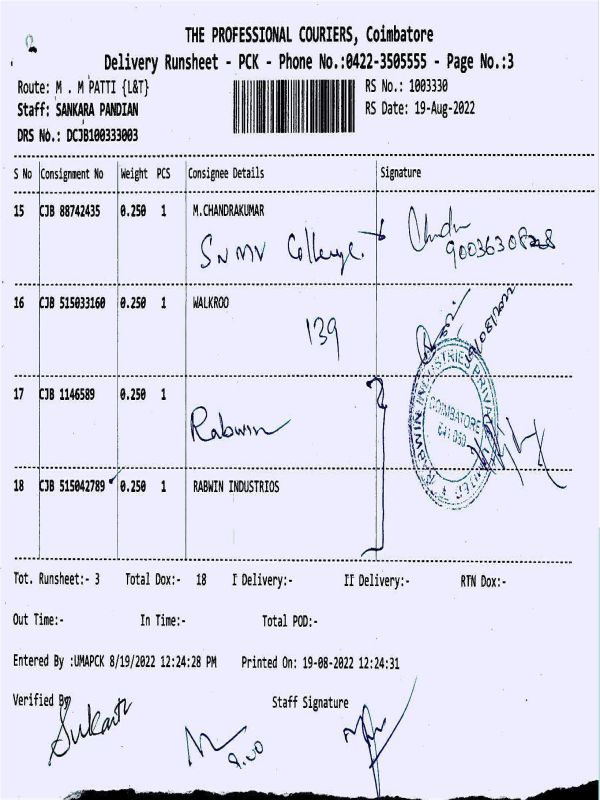 THE PROFESSIONAL COURIERS, Coimbatore
Delivery Runsheet - PCK - Phone No.:0422-3505555 - Page No.:3
Route: M . M PATTI {L&T}
RS No.: 1003330
Staff: SANKARA PANDIAN
RS Date: 19-Aug-2022
DRS No.: DCJB100333003
S No Consignment No Weight PCS Consignee Details Signature
15 CJB 88742435 0.250 1 M.CHANDRAKUMAR
SNMV College.
16 CJB 515033160 0.250 1 WALKROO
139
17 CJB 1146589 0.250 1
Rabwin
RABWIN INDUSTRIES PRIVATE LIMITED
COIMBATORE
641 050
18 CJB 515042789 0.250 1 RABWIN INDUSTRIOS
Tot. Runsheet:- 3 Total Dox:- 18 I Delivery:- II Delivery:- RTN Dox:-
Out Time:- In Time:- Total POD:-
Entered By :UMAPCK 8/19/2022 12:24:28 PM Printed On: 19-08-2022 12:24:31
Verified By Staff Signature
9.00